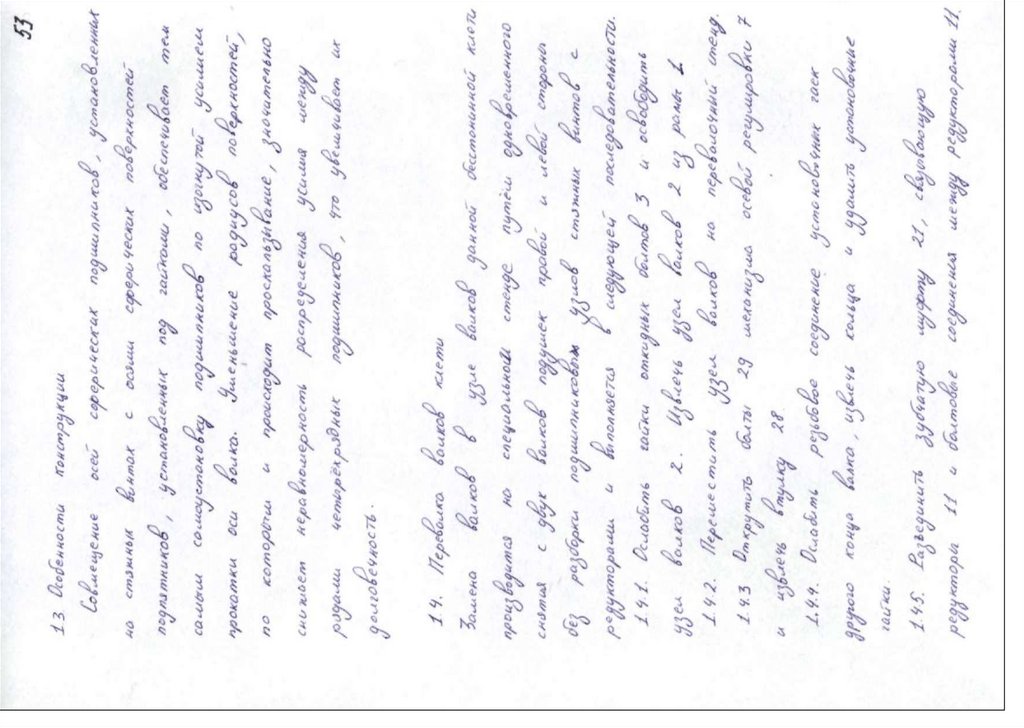 53
1.3 Особенности конструкции
Совмещение осей сферических подшипников, установленных
на стяжных винтах с осями сферических поверхностей
подпятников, установленных под гайками, обеспечивает тем
самым самоустановку подшипников по изогнутой усилием
прокатки оси валка. Уменьшение радиусов поверхностей,
по которым и происходит проскальзывание, значительно
снижает неравномерность распределения усилия между
рядами четырёхрядных подшипников, что увеличивает их
долговечность.
1.4. Перевалка валков клети
Замена валков в узле валков данной бесстанинной клети
производится на специальном стенде путём одновременного
снятия с двух валков подушек правой и левой сторон
без разборки подшипниковых узлов стяжных винтов с
редукторами и выполняется в следующей последовательности.
1.4.1. Ослабить гайки откидных болтов 3 и освободить
узел валков 2. Извлечь узел валков 2 из рамы 1
1.4.2. Переместить узел валков на перевалочный стенд.
1.4.3 Открутить болты 29 механизма осевой регулировки 7
и извлечь втулку 28.
1.4.4. Ослабить резьбовое соединение установочных гаек
другого конца валка, извлечь кольца и удалить установочные
гайки.
1.4.5. Разъединить зубчатую муфту 21, связывающую
редуктора 11 и болтовые соединения между редукторами 11.